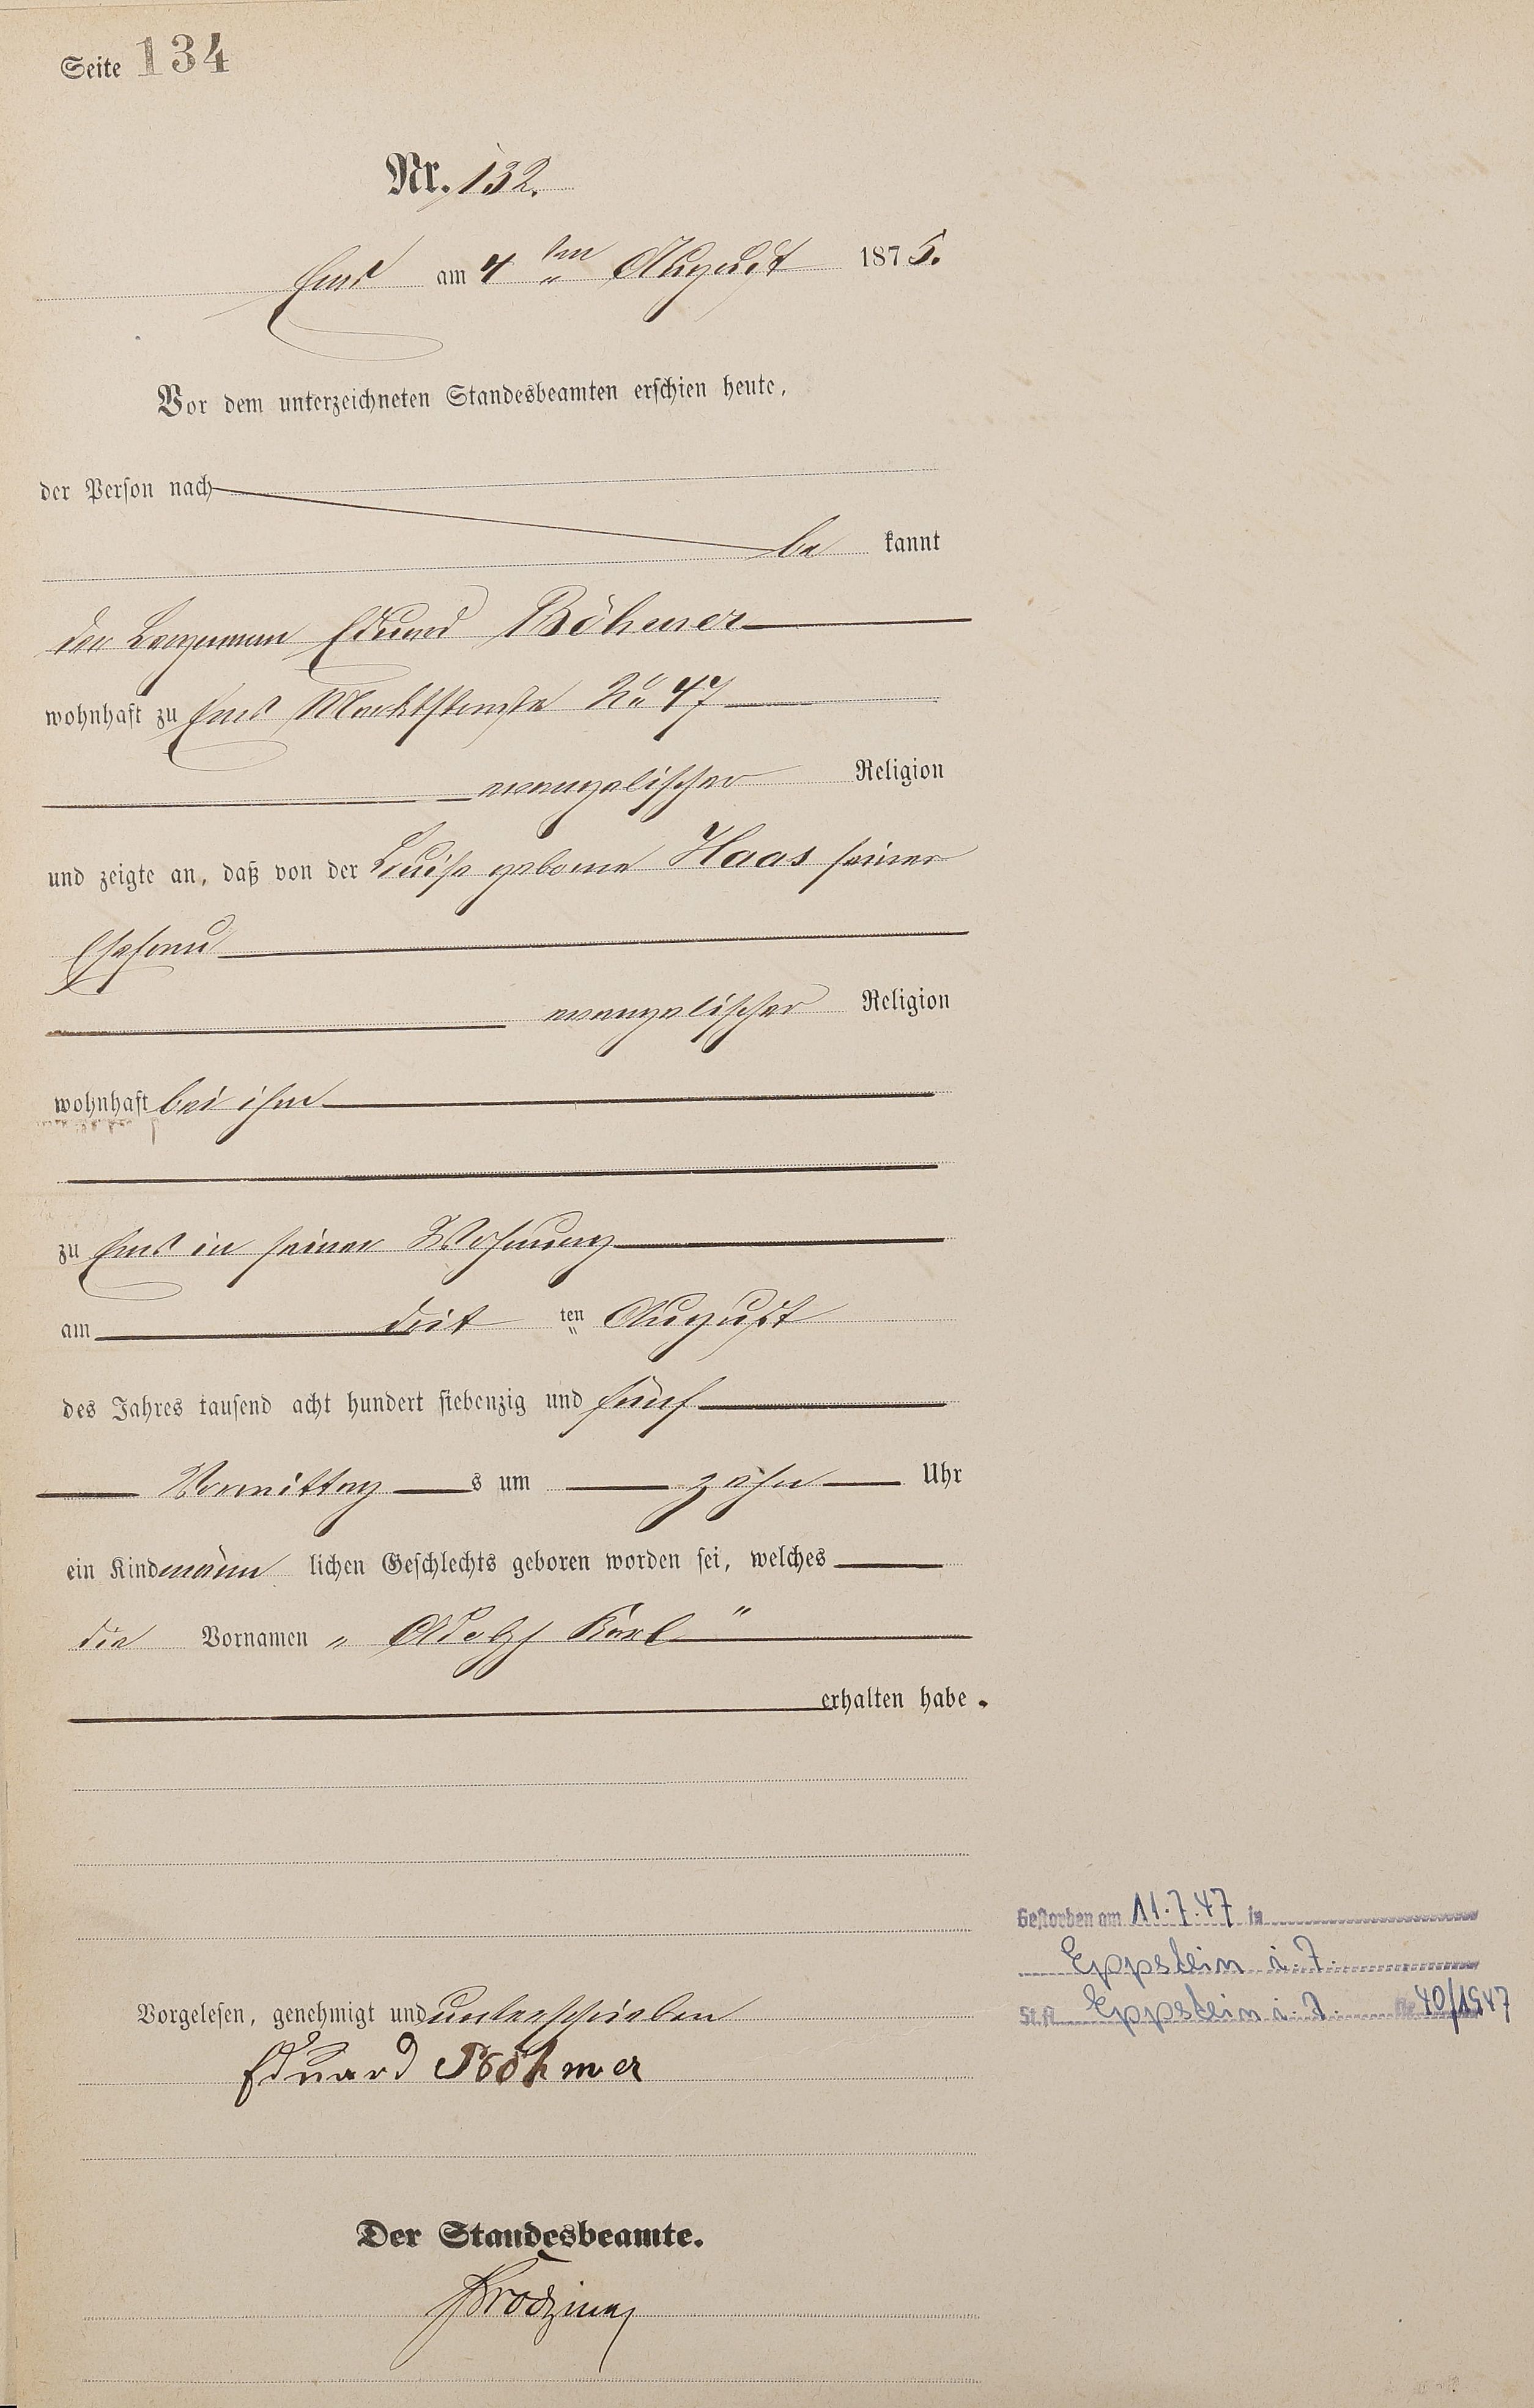 Seite 134
Nr. 132.
Ems am 4 ten August 1875.
Vor dem unterzeichneten Standesbeamten erschien heute,
der Person nach
be kannt
der Bergmann Eduard Böhmer
wohnhaft zu Ems Marktstraße No 47
evangelischer Religion
und zeigte an, daß von der Louise geborne Haas seiner
Ehefrau
evangelischer Religion
wohnhaft bei ihm
zu Ems in seiner Wohnung
am drit ten August
des Jahres tausend acht hundert siebenzig und fünf
Vormittag s um zehn Uhr
ein Kind männ lichen Geschlechts geboren worden sei, welches
die Vornamen „ Adolf Karl "
erhalten habe.
Gestorben am 11.7.47 in
Eppstein i. T.
St.A. Eppstein i. T. Nr. 40/1947
Vorgelesen, genehmigt und unterschrieben
Eduard Böhmer
Der Standesbeamte.